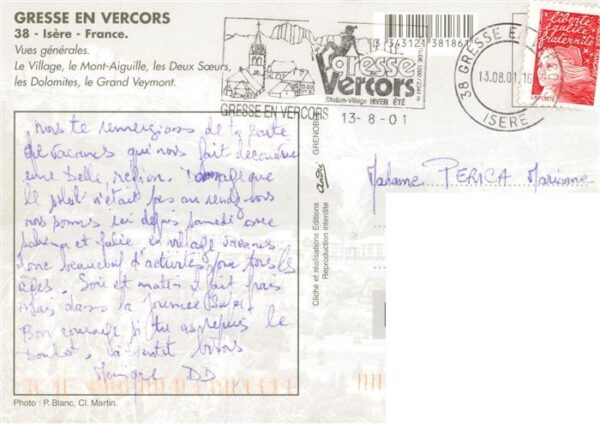 GRESSE EN VERCORS
38 - Isère - France.
Vues générales.
Le Village, le Mont-Aiguille, les Deux Sœurs,
les Dolomites, le Grand Veymont.
3 343121 38186
gresse en
Vercors
Station-Village HIVER ÉTÉ
GRESSE EN VERCORS
13-8-01
38 GRESSE EN
13.08.01
ISERE
liberté
égalité
fraternité
LA POSTE
nous te remercions de la carte
de vacances qui nous fait découvrir
une belle région. dommage que
le soleil n'était pas au rendez vous
nous sommes ici depuis samedi avec
et Julie en village vacances
donc beaucoup d'activités pour tous les
âges. Soir et matin il fait frais
mais dans la journée
Bon courage si tu as repris le
boulot. bientôt bisous
DD
Madame PERICA Marianne
André GRENOBLE
Cliché et réalisations Editions
Reproduction interdite
Photo : P. Blanc, Cl. Martin.